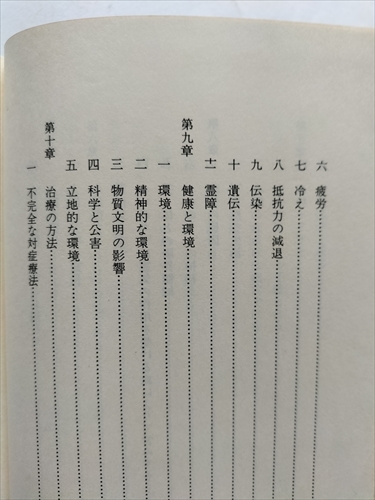 六 疲労
七 冷え
八 抵抗力の減退
九 伝染
十 遺伝
十一 霊障
第九章 健康と環境
一 環境
二 精神的な環境
三 物質文明の影響
四 科学と公害
五 立地的な環境
第十章 治療の方法
一 不完全な対症療法